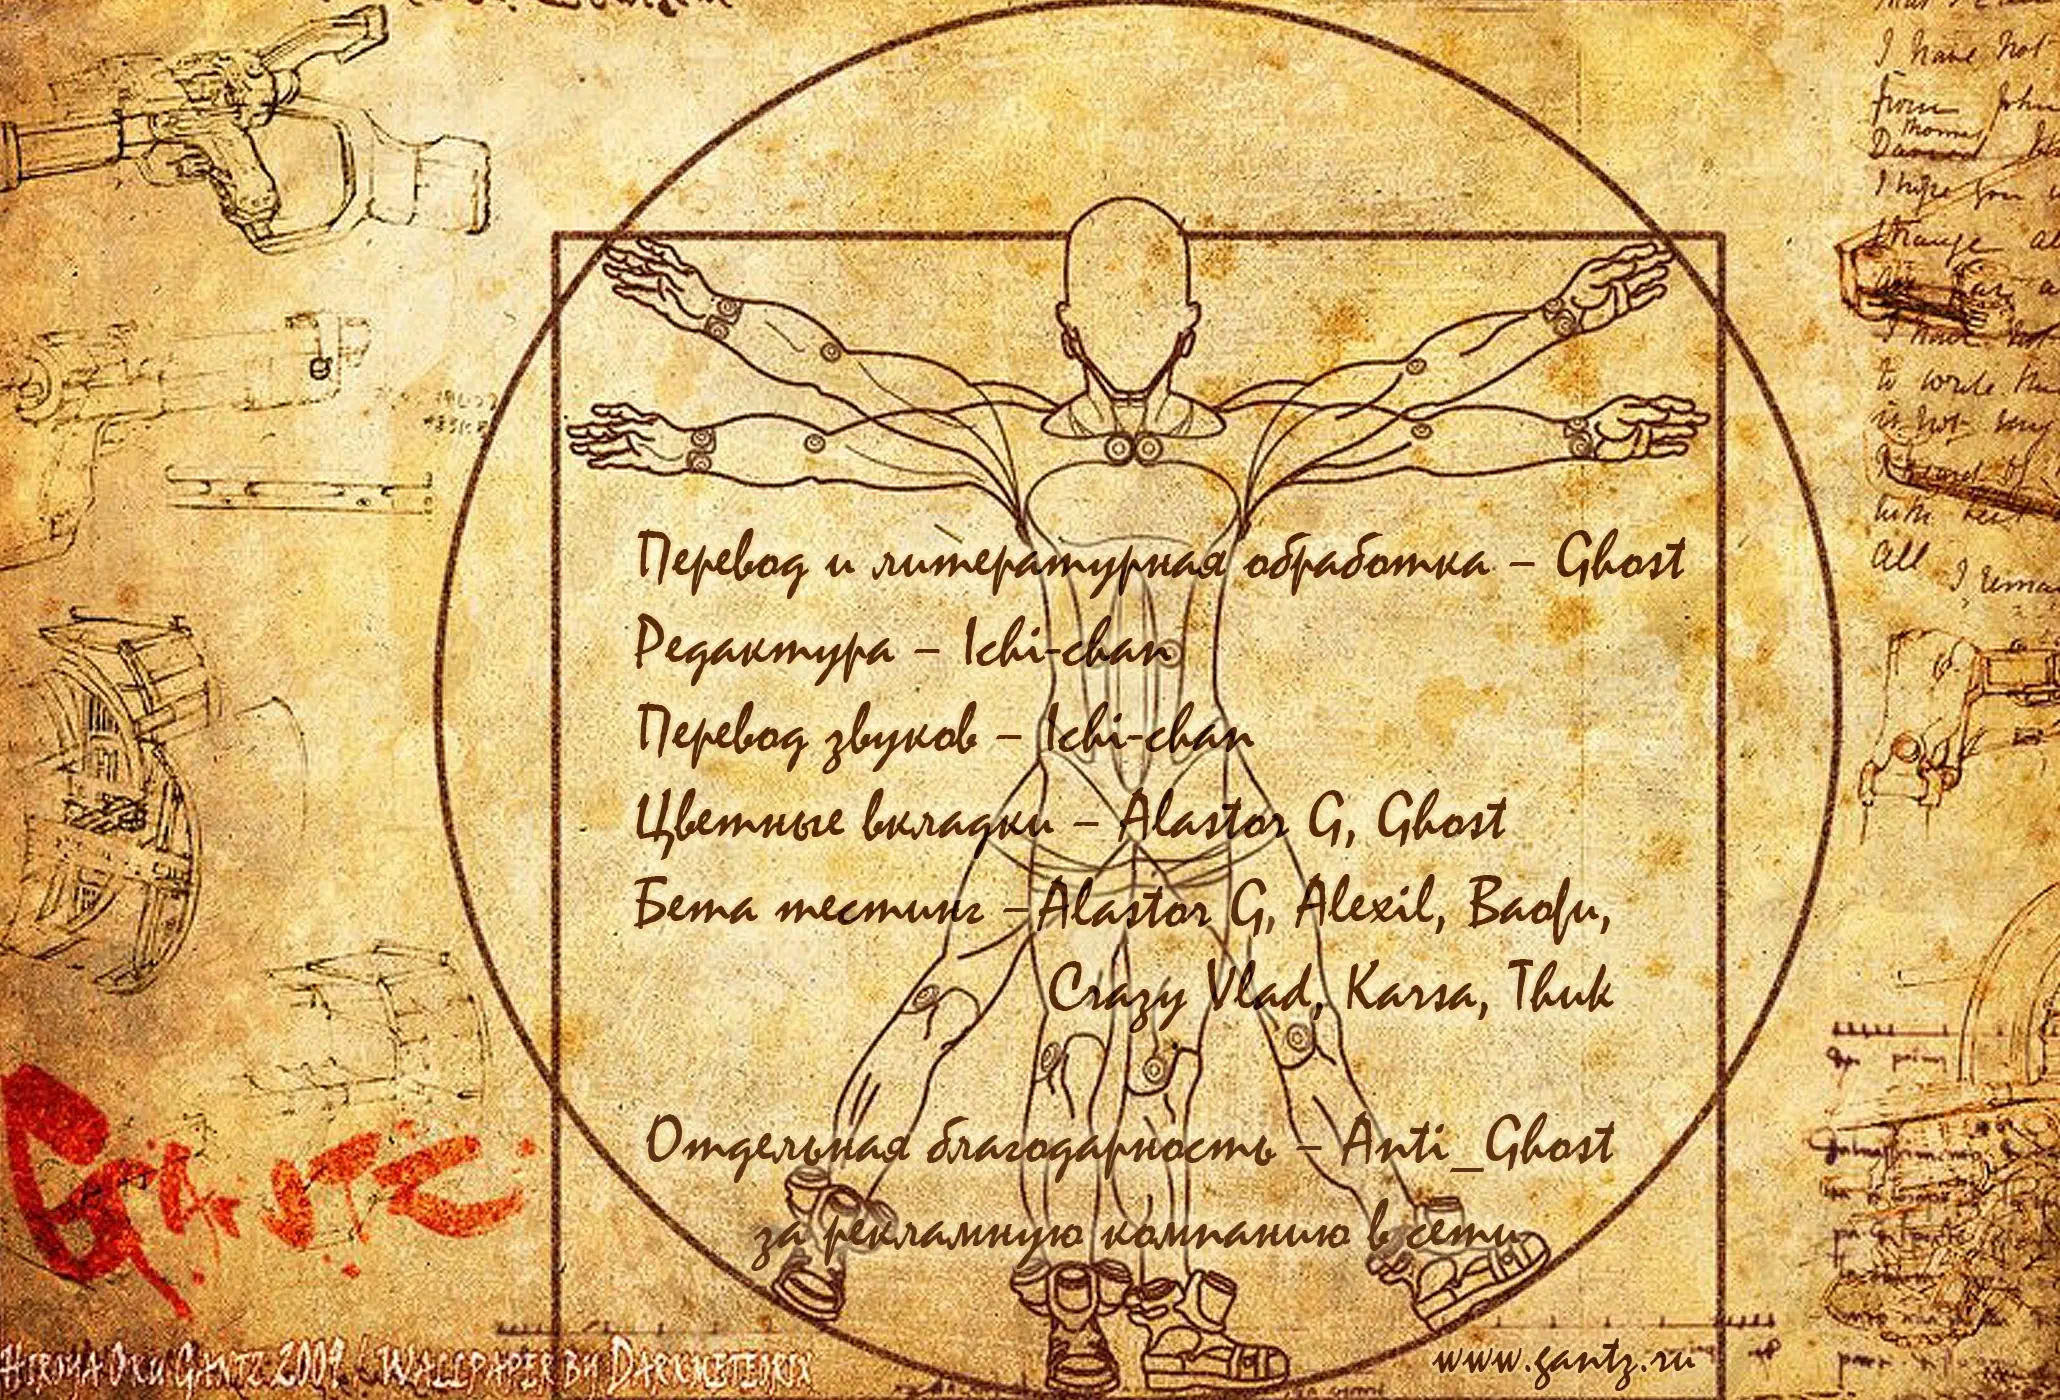 I have not
from John
Thomas
I hope you
strange
I have not
to write
is not my
with
All
Перевод и литературная обработка – Ghost
Редактура – Ichi-chan
Перевод звуков – Ichi-chan
Цветные вкладки – Alastor G, Ghost
Бета тестинг – Alastor G, Alexil, Baofu,
Crazy Vlad, Karsa, Thuk
Отдельная благодарность – Anti_Ghost
за рекламную компанию в сети
Gantz
Hiroya Oku Gantz 2009 / Wallpaper by Darkmeteorix
www.gantz.ru